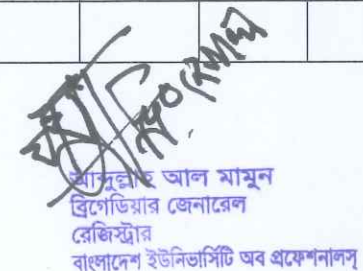 আব্দুল্লাহ আল মামুন
ব্রিগেডিয়ার জেনারেল
রেজিস্ট্রার
বাংলাদেশ ইউনিভার্সিটি অব প্রফেশনালস্